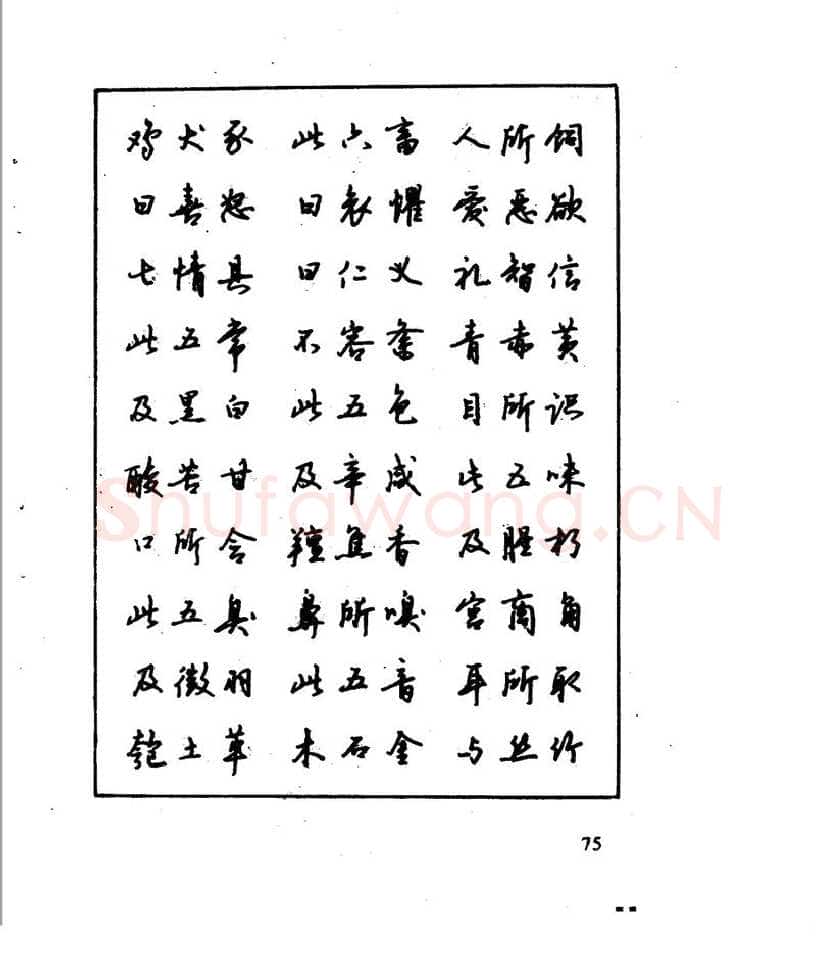 鸡犬豕 此六畜 人所饲
曰喜怒 曰哀惧 爱恶欲
七情具 曰仁义 礼智信
此五常 不容紊 青赤黄
及黑白 此五色 目所识
酸苦甘 及辛咸 此五味
口所含 膻焦香 及腥朽
此五臭 鼻所嗅 宫商角
及徵羽 此五音 耳所取
匏土革 木石金 与丝竹
75
Shufawang.CN